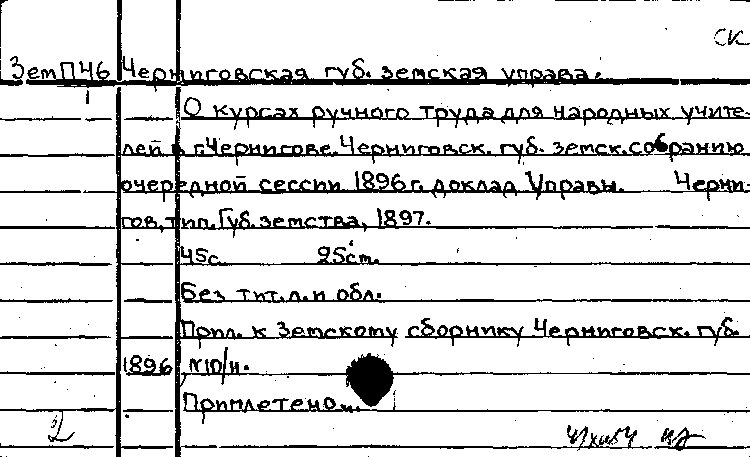 СК
ЗемП46 Черниговская губ. земская управа.
1
О курсах ручного труда для народных учите-
лей в г.Чернигове. Черниговск. губ. земск. собранию
очередной сессии 1896 г. доклад Управы. Черни-
гов, тип. Губ. земства, 1897.
45с. 25см.
Без тит.л. и обл.
Прил. к Земскому сборнику Черниговск. губ.
1896, №10/и.
Приплетено...
2